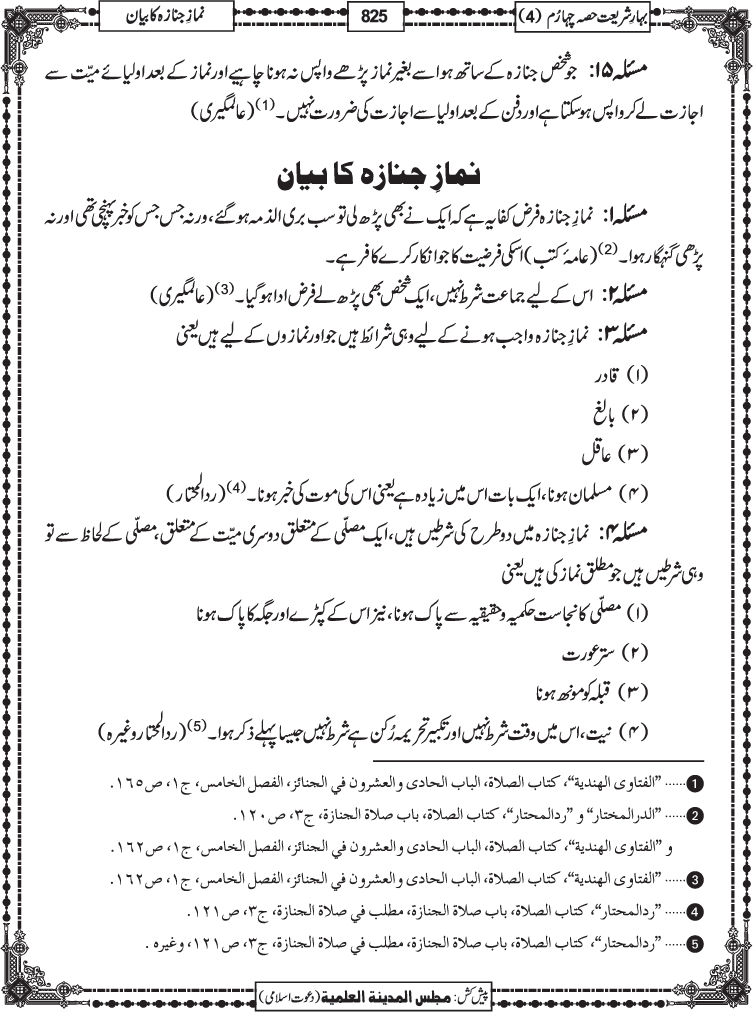 بہارِ شریعت حصہ چہارُم (4)
825
نمازِ جنازہ کا بیان
مسئلہ ۱۵: جو شخص جنازہ کے ساتھ ہو اسے بغیر نماز پڑھے واپس نہ ہونا چاہیے اور نماز کے بعد اولیائے میّت سے
اجازت لے کر واپس ہوسکتا ہے اور دفن کے بعد اولیا سے اجازت کی ضرورت نہیں۔(1) (عالمگیری)
نمازِ جنازہ کا بیان
مسئلہ ۱: نمازِ جنازہ فرض کفایہ ہے کہ ایک نے بھی پڑھ لی تو سب بری الذمہ ہوگئے، ورنہ جس جس کو خبر پہنچی تھی اور نہ
پڑھی گنہگار ہوا۔(2) (عامۂ کتب) اسکی فرضیت کا جو انکار کرے کافر ہے۔
مسئلہ ۲: اس کے لیے جماعت شرط نہیں، ایک شخص بھی پڑھ لے فرض ادا ہوگیا۔(3) (عالمگیری)
مسئلہ ۳: نمازِ جنازہ واجب ہونے کے لیے وہی شرائط ہیں جو اور نمازوں کے لیے ہیں یعنی
(۱) قادر
(۲) بالغ
(۳) عاقل
(۴) مسلمان ہونا، ایک بات اس میں زیادہ ہے یعنی اس کی موت کی خبر ہونا۔(4) (ردالمحتار)
مسئلہ ۴: نمازِ جنازہ میں دو طرح کی شرطیں ہیں، ایک مصلّی کے متعلق دوسری میّت کے متعلق، مصلّی کے لحاظ سے تو
وہی شرطیں ہیں جو مطلق نماز کی ہیں یعنی
(۱) مصلّی کا نجاست حکمیہ و حقیقیہ سے پاک ہونا، نیز اس کے کپڑے اور جگہ کا پاک ہونا
(۲) ستر عورت
(۳) قبلہ کو مونھ ہونا
(۴) نیت، اس میں وقت شرط نہیں اور تکبیر تحریمہ رُکن ہے شرط نہیں جیسا پہلے ذکر ہوا۔(5) (ردالمحتار وغیرہ)
1 ...... ”الفتاوی الهندية“، كتاب الصلاة، الباب الحادی والعشرون في الجنائز، الفصل الخامس، ج١، ص١٦٥.
2 ...... ”الدرالمختار“ و ”ردالمحتار“، كتاب الصلاة، باب صلاة الجنازة، ج٣، ص١٢٠.
و ”الفتاوی الهندية“، كتاب الصلاة، الباب الحادی والعشرون في الجنائز، الفصل الخامس، ج١، ص١٦٢.
3 ...... ”الفتاوی الهندية“، كتاب الصلاة، الباب الحادی والعشرون في الجنائز، الفصل الخامس، ج١، ص١٦٢.
4 ...... ”ردالمحتار“، كتاب الصلاة، باب صلاة الجنازة، مطلب في صلاة الجنازة، ج٣، ص١٢١.
5 ...... ”ردالمحتار“، كتاب الصلاة، باب صلاة الجنازة، مطلب في صلاة الجنازة، ج٣، ص١٢١، وغيره.
پیش کش: مجلس المدینة العلمیة (دعوت اسلامی)